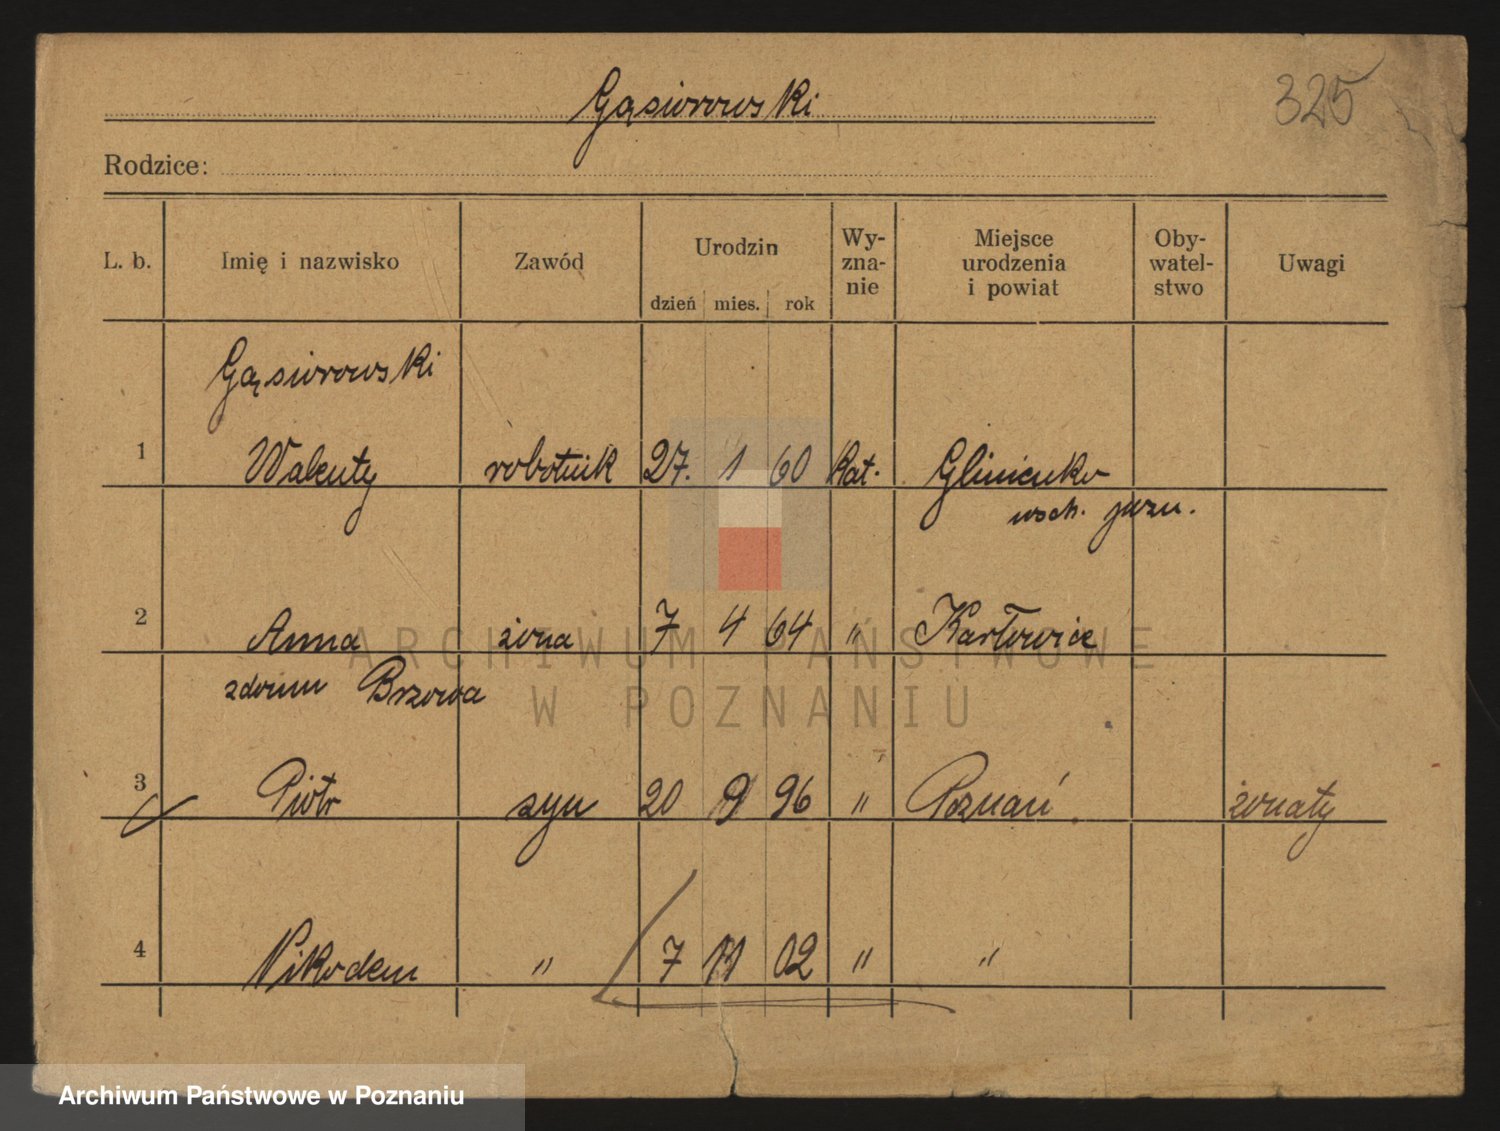 Gąsiorowski
325
Rodzice:
L. b. Imię i nazwisko Zawód Urodzin dzień mies. rok Wy-zna-nie Miejsce urodzenia i powiat Oby-watel-stwo Uwagi
Gąsiorowski
1 Walenty robotnik 27. 1 60 Kat. Glinienko
wsch.
2 Anna żona 7 4 64 " Karłowice
zdomu Brzowa
3 Piotr syn 20 9 96 " Poznań żonaty
4 Nikodem " 7 11 02 " "
ARCHIWUM PAŃSTWOWE
W POZNANIU
Archiwum Państwowe w Poznaniu